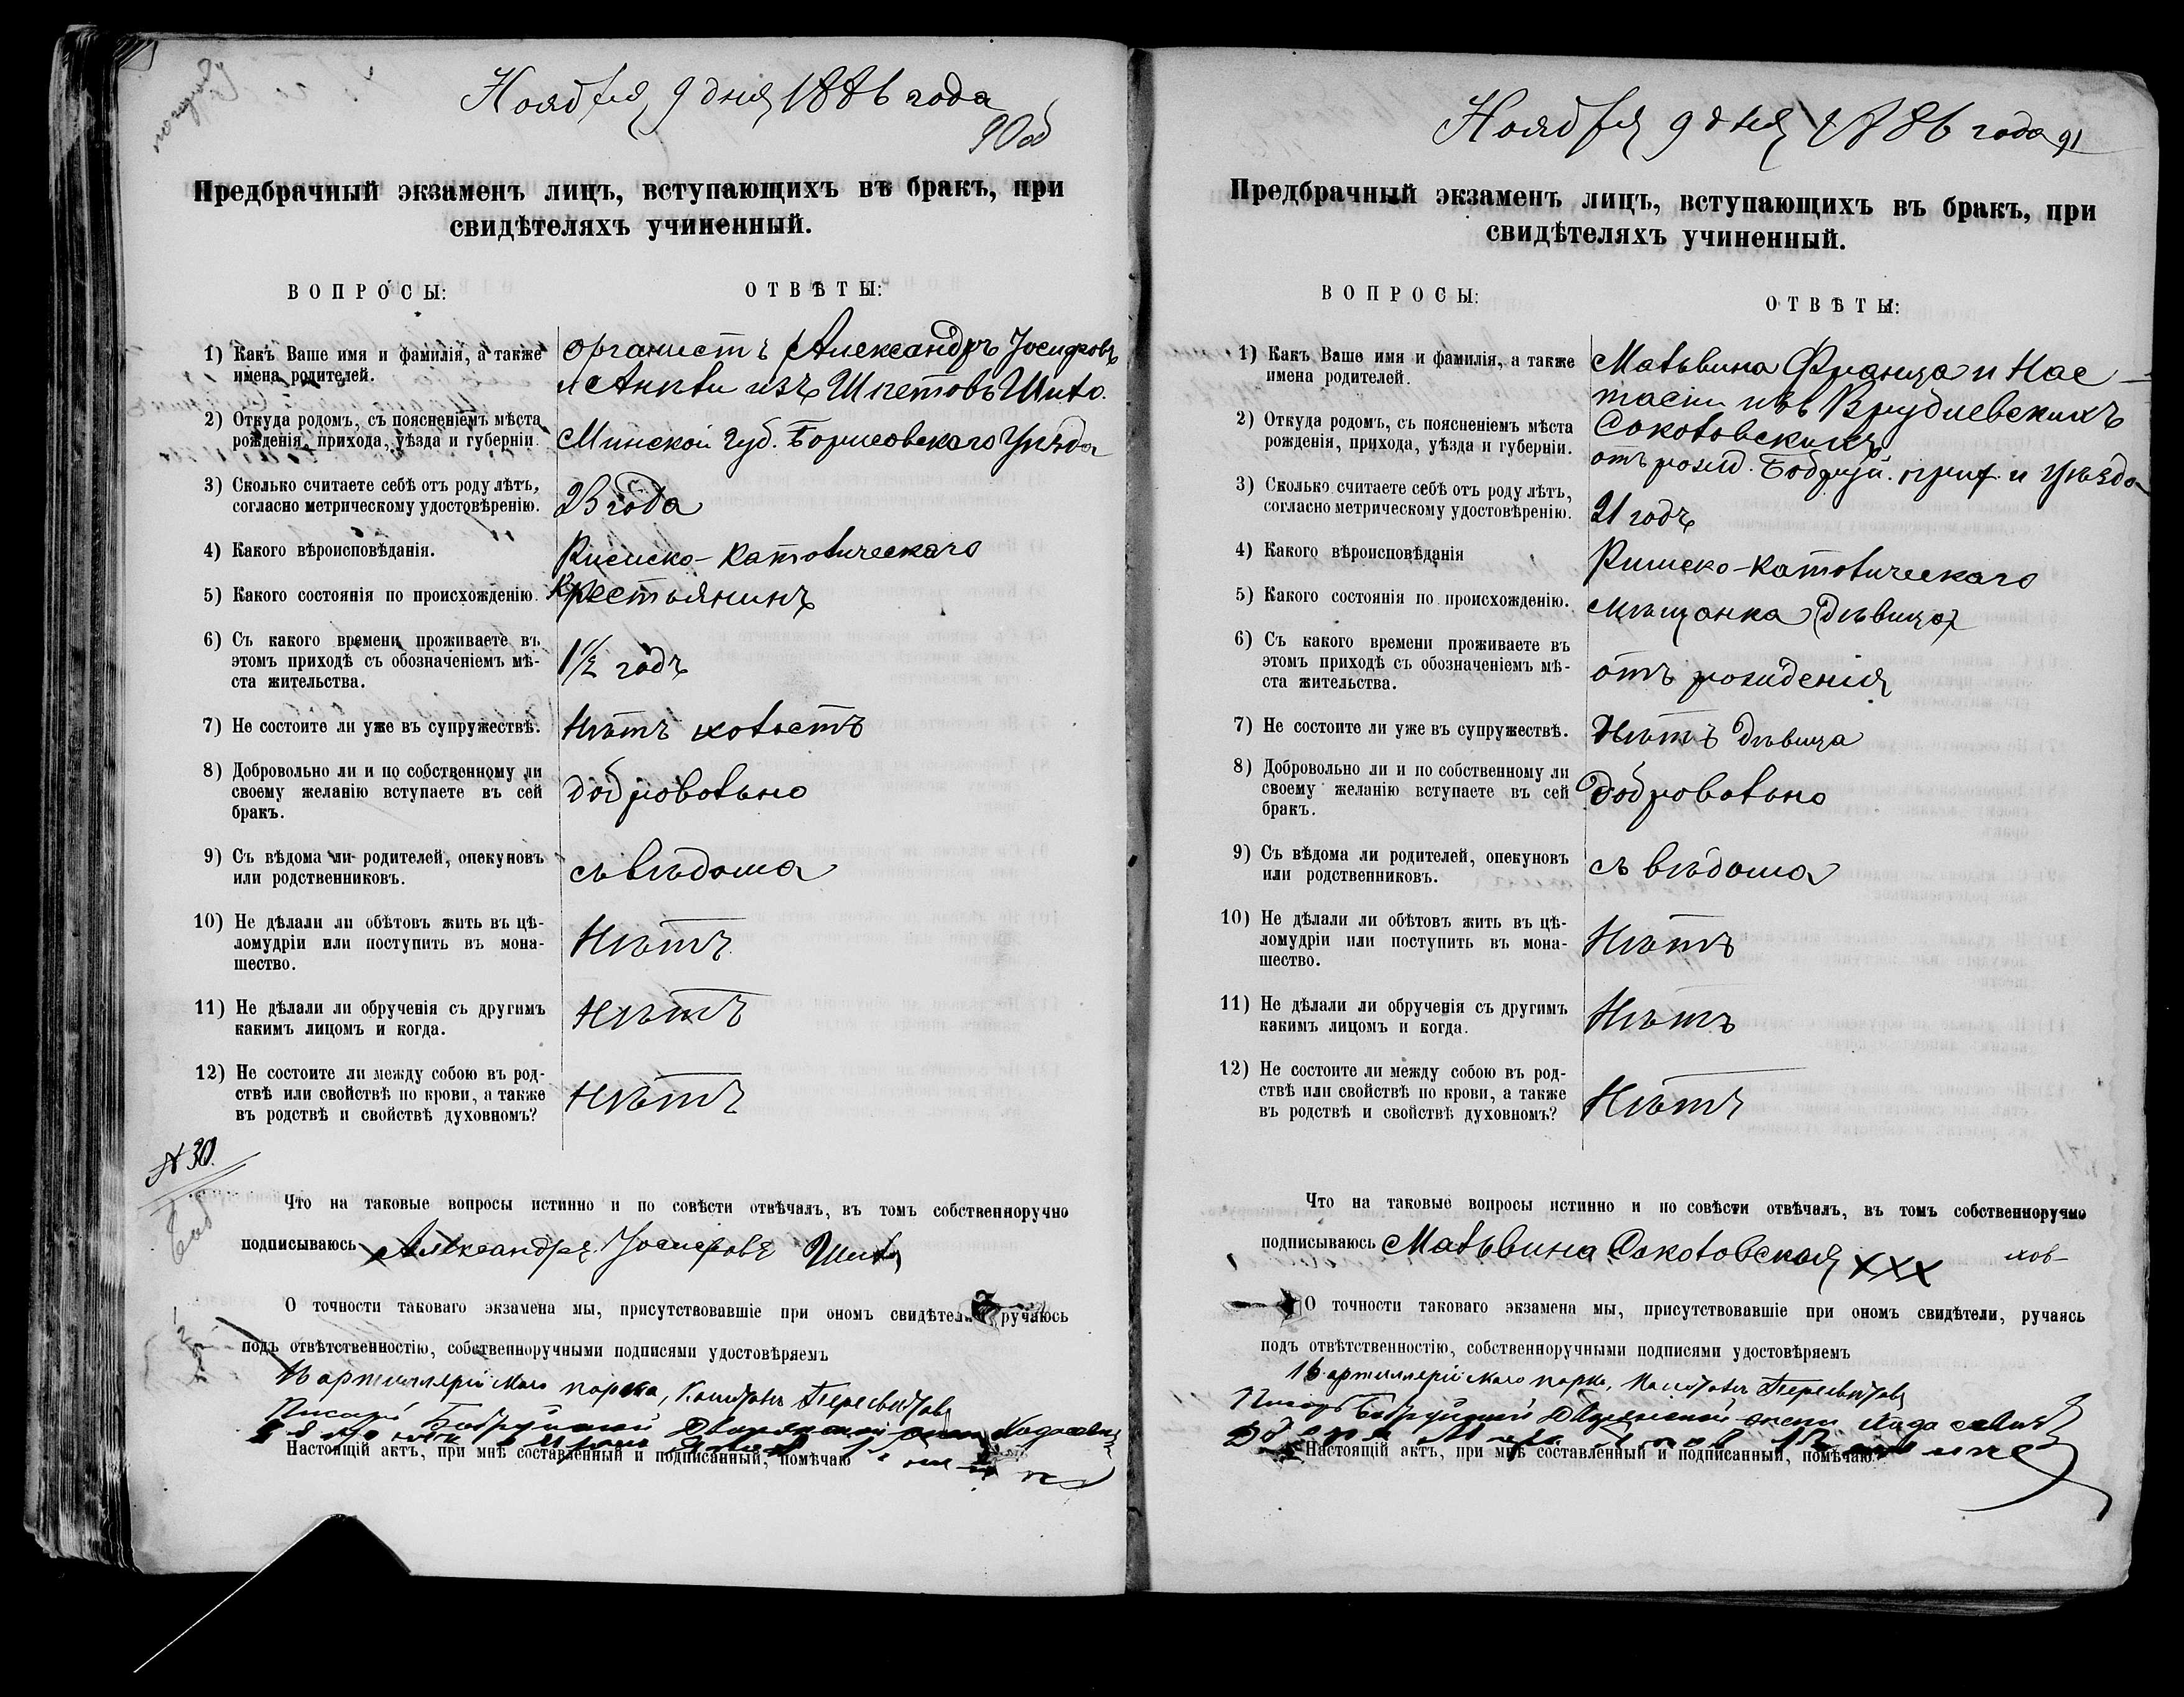 Ноября 9 дня 1886 года
90об
Предбрачный экзаменъ лицъ, вступающихъ въ бракъ, при
свидѣтеляхъ учиненный.
ВОПРОСЫ:
ОТВѢТЫ:
1) Какъ Ваше имя и фамилія, а также
имена родителей.
органистъ Александръ Іосифовъ
и Анны изъ Шито.
2) Откуда родомъ, съ поясненіемъ мѣста
рожденія, прихода, уѣзда и губерніи.
Минской губ. Борисовскаго Уѣзда
3) Сколько считаете себѣ отъ роду лѣтъ,
согласно метрическому удостовѣренію.
23 года
4) Какого вѣроисповѣданія.
Римско-Католическаго
5) Какого состоянія по происхожденію.
Крестьянинъ
6) Съ какого времени проживаете въ
этомъ приходѣ съ обозначеніемъ мѣ-
ста жительства.
1½ годъ
7) Не состоите ли уже въ супружествѣ.
Нѣтъ холостъ
8) Добровольно ли и по собственному ли
своему желанію вступаете въ сей
бракъ.
добровольно
9) Съ вѣдома ли родителей, опекуновъ
или родственниковъ.
съ вѣдома
10) Не дѣлали ли обѣтовъ жить въ цѣ-
ломудріи или поступить въ мона-
шество.
Нѣтъ
11) Не дѣлали ли обрученія съ другимъ
какимъ лицомъ и когда.
Нѣтъ
12) Не состоите ли между собою въ род-
ствѣ или свойствѣ по крови, а также
въ родствѣ и свойствѣ духовномъ?
Нѣтъ
№ 30.
Что на таковые вопросы истинно и по совѣсти отвѣчалъ, въ томъ собственноручно
подписываюсь Александръ Іосифовъ Шито
О точности таковаго экзамена мы, присутствовавшіе при ономъ свидѣтели ручаюсь
подъ отвѣтственностію, собственноручными подписями удостовѣряемъ
16 артиллерійскаго парка, Капитанъ Пересвѣтовъ
Писарь Бобруйской Дворянской опеки
Настоящій актъ, при мнѣ составленный и подписанный, помѣчаю
Ноября 9 дня 1886 года
91
Предбрачный экзаменъ лицъ, вступающихъ въ бракъ, при
свидѣтеляхъ учиненный.
ВОПРОСЫ:
ОТВѢТЫ:
1) Какъ Ваше имя и фамилія, а также
имена родителей.
Мальвина Франца и Нас-
тасіи изъ Врублевскихъ
Соколовскихъ
2) Откуда родомъ, съ поясненіемъ мѣста
рожденія, прихода, уѣзда и губерніи.
отъ рожд. Бобруй. прих. и Уѣзда
3) Сколько считаете себѣ отъ роду лѣтъ,
согласно метрическому удостовѣренію.
21 годъ
4) Какого вѣроисповѣданія
Римско-Католическаго
5) Какого состоянія по происхожденію.
мѣщанка (дѣвица)
6) Съ какого времени проживаете въ
этомъ приходѣ съ обозначеніемъ мѣ-
ста жительства.
отъ рожденія
7) Не состоите ли уже въ супружествѣ.
Нѣтъ дѣвица
8) Добровольно ли и по собственному ли
своему желанію вступаете въ сей
бракъ.
Добровольно
9) Съ вѣдома ли родителей, опекуновъ
или родственниковъ.
съ вѣдома
10) Не дѣлали ли обѣтовъ жить въ цѣ-
ломудріи или поступить въ мона-
шество.
Нѣтъ
11) Не дѣлали ли обрученія съ другимъ
какимъ лицомъ и когда.
Нѣтъ
12) Не состоите ли между собою въ род-
ствѣ или свойствѣ по крови, а также
въ родствѣ и свойствѣ духовномъ?
Нѣтъ
Что на таковые вопросы истинно и по совѣсти отвѣчалъ, въ томъ собственноручно
подписываюсь Мальвина Соколовская ХХХ
О точности таковаго экзамена мы, присутствовавшіе при ономъ свидѣтели, ручаясь
подъ отвѣтственностію, собственноручными подписями удостовѣряемъ
16 артиллерійскаго парка, Капитанъ Пересвѣтовъ
Писарь Бобруйской Дворянской опеки
Настоящій актъ, при мнѣ составленный и подписанный, помѣчаю.